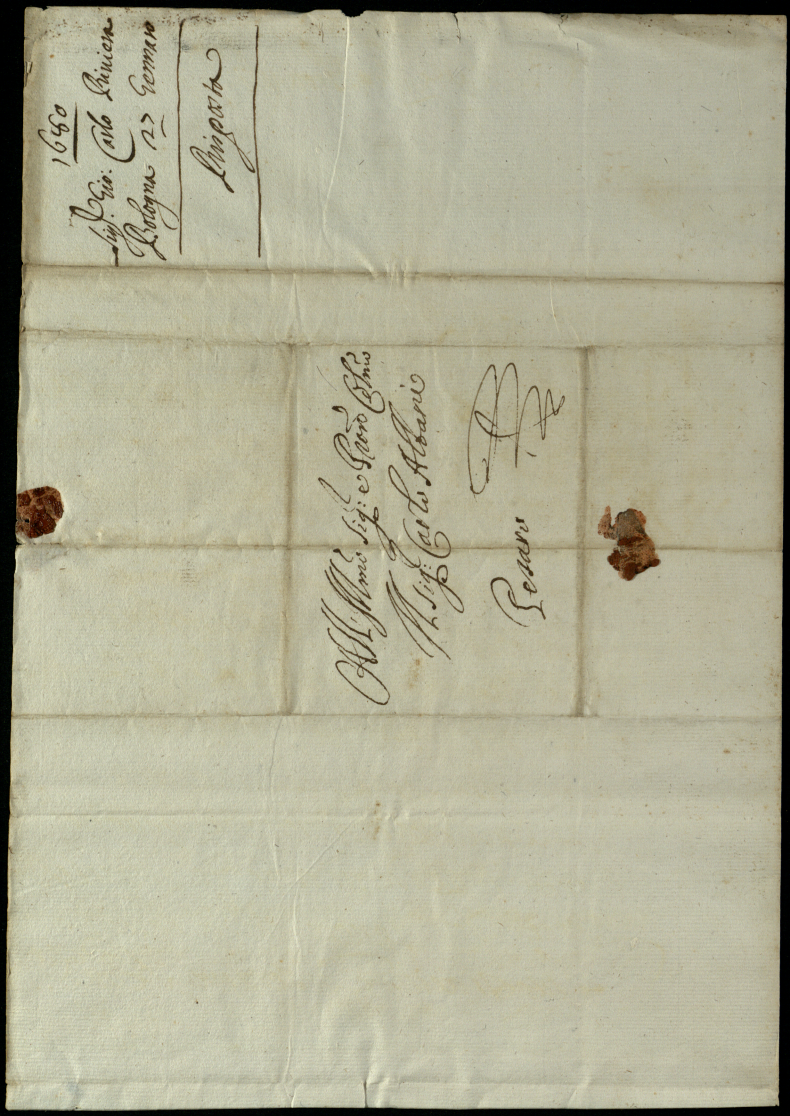 1680
Sig.r Gio: Carlo Riviera
Bologna 27 Gennaro
Risposta
All' Ill.mo Sig.r e Pron Col.mo
Il Sig.r Carlo Albani
Pesaro